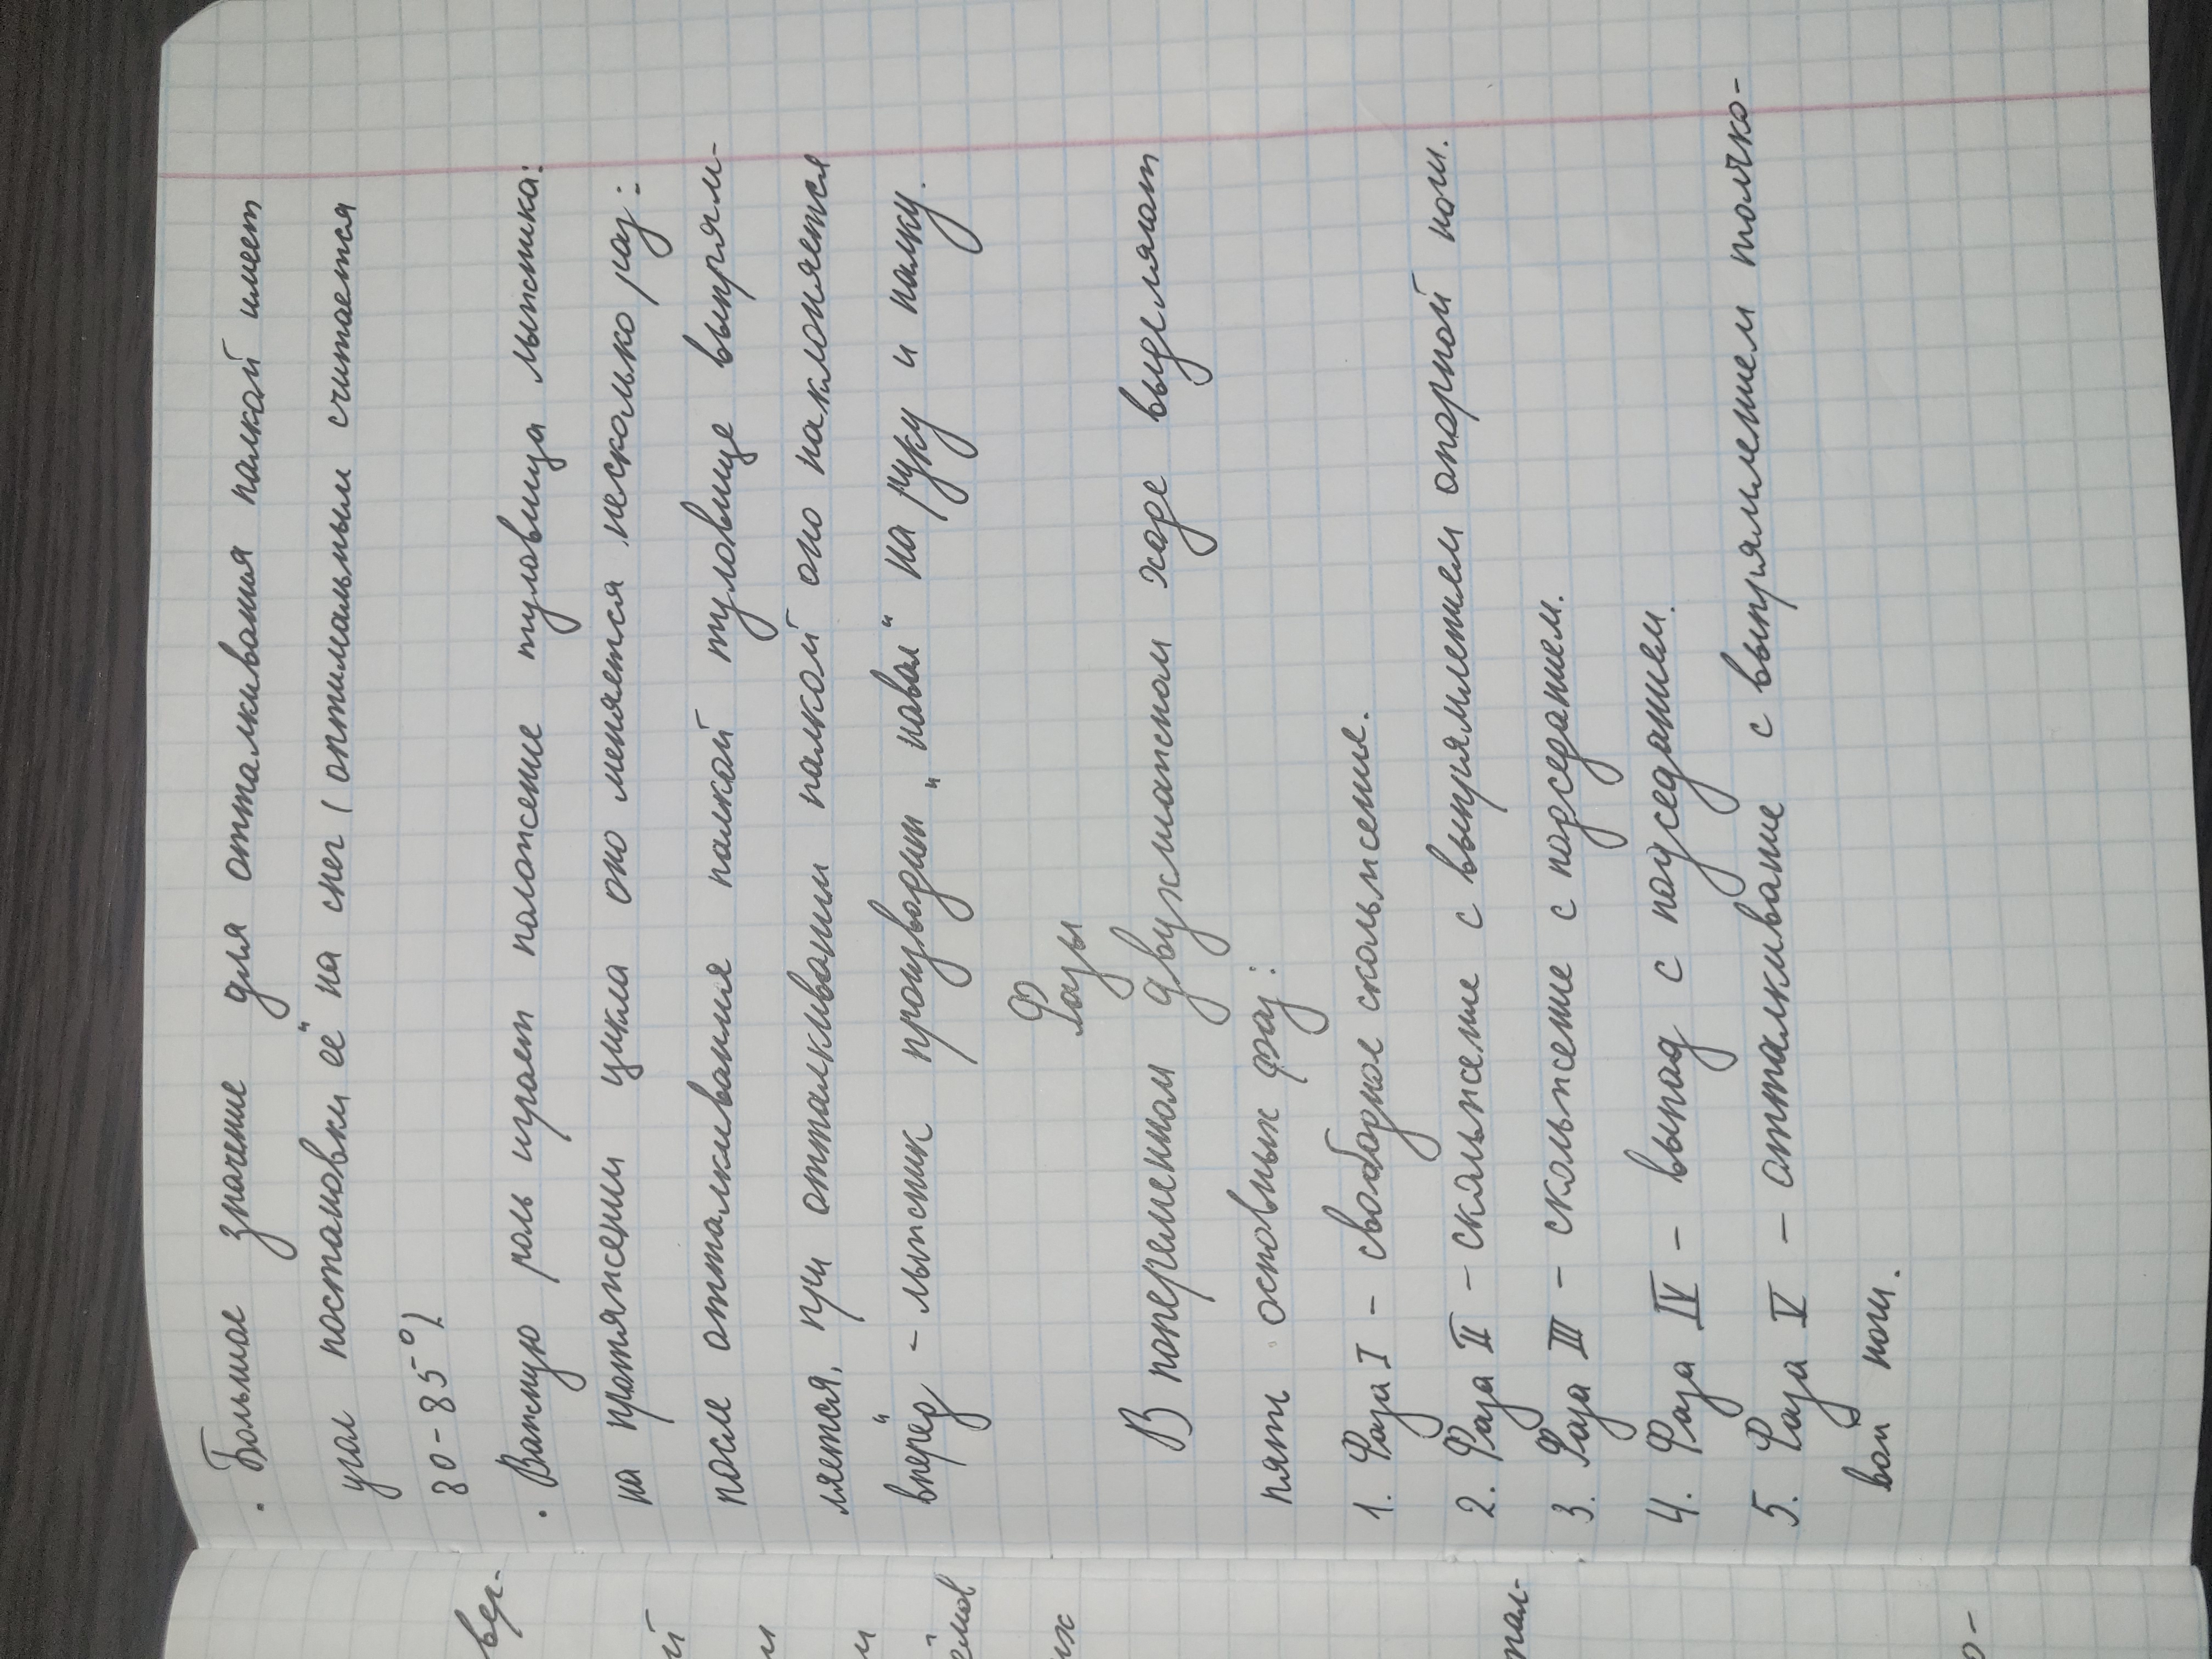 · Большое значение для отталкивания палкой имеет
угол постановки её на снег (оптимальным считается
80-85°)
· Важную роль играет положение туловища лыжника:
на протяжении цикла оно меняется несколько раз:
после отталкивания палкой туловище выпрям-
ляется, при отталкивании палкой оно наклоняется
вперёд - лыжник производит „навал" на руку и палку.
Фазы
В попеременном двухшажном ходе выделяют
пять основных фаз:
1. Фаза I - свободное скольжение.
2. Фаза II - скольжение с выпрямлением опорной ноги.
3. Фаза III - скольжение с подседанием.
4. Фаза IV - выпад с подседанием.
5. Фаза V - отталкивание с выпрямлением толчко-
вой ноги.